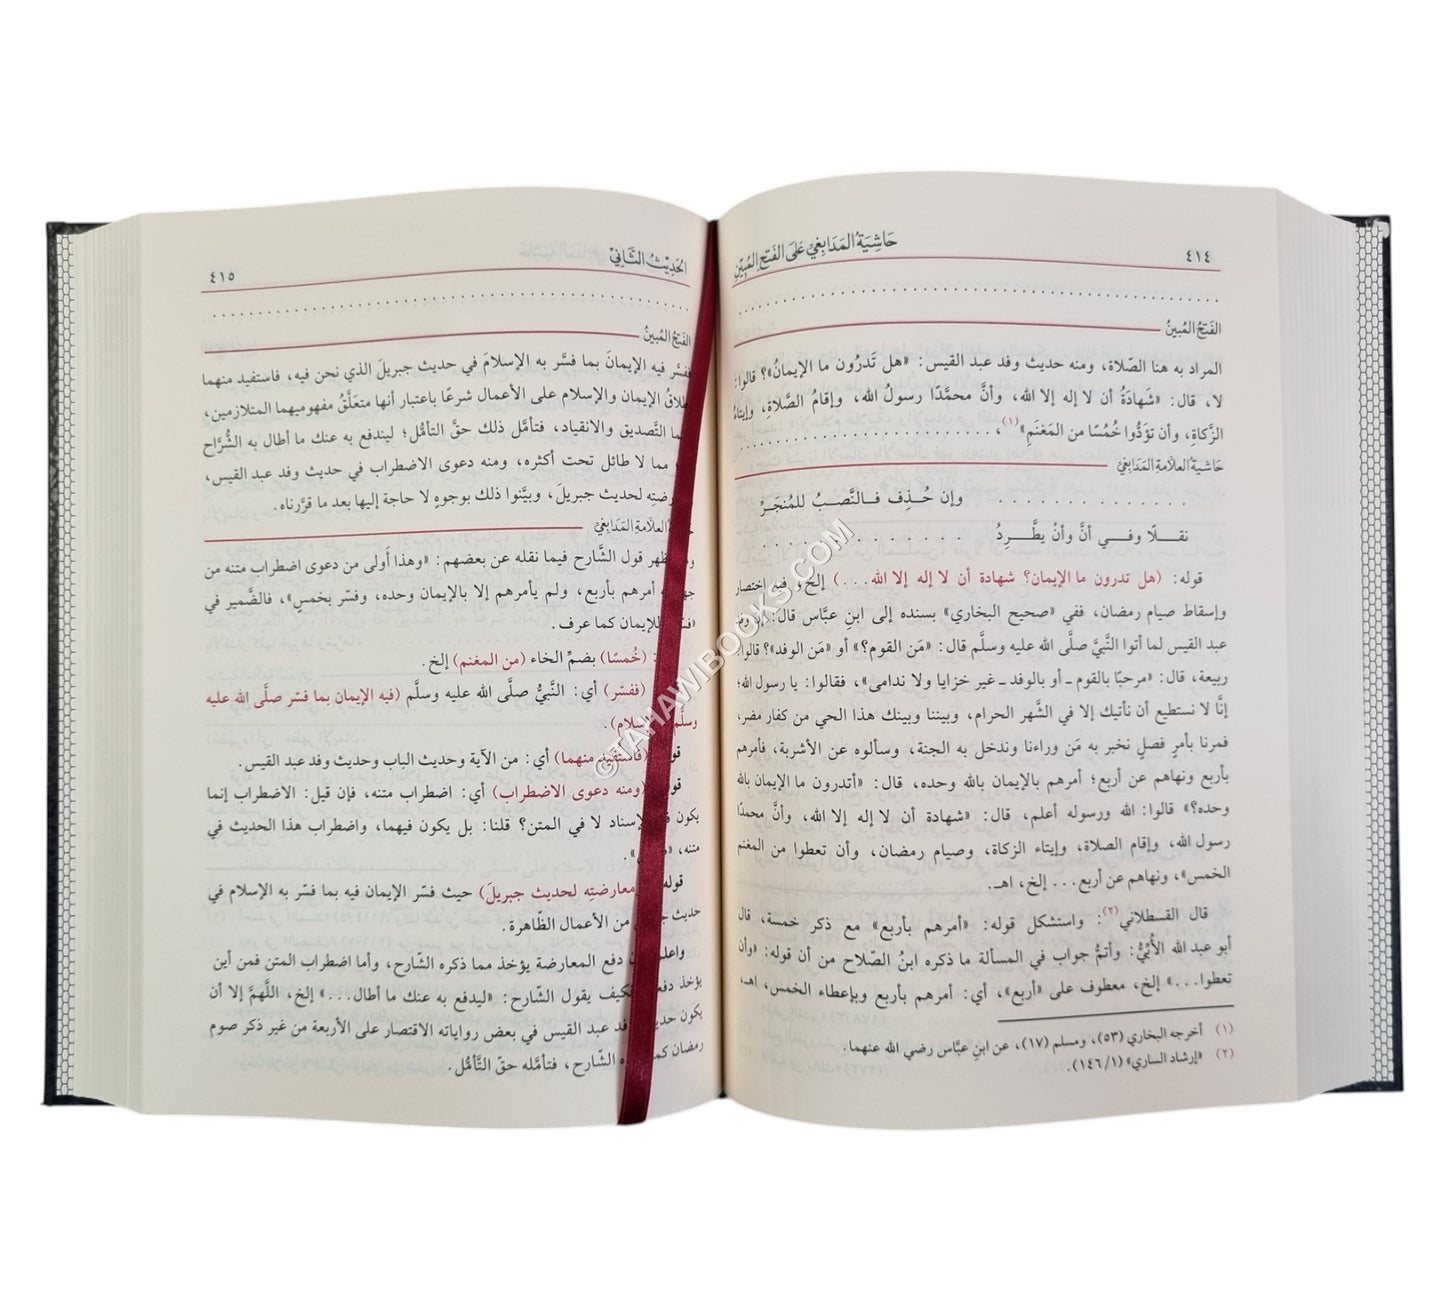 ٤١٤
حَاشِيَةُ المَدَابِغِيّ عَلَى الفَتْحِ المُبِيْنِ
الفَتْحُ المُبِينُ
المراد به هنا الصّلاة، ومنه حديث وفد عبد القيس: «هل تَدرُون ما الإيمانُ»؟ قالوا:
لا، قال: «شَهادَةُ أن لا إله إلا الله، وأنَّ محمَّدًا رسولُ الله، وإقامُ الصَّلاة، وإيتاءُ
الزَّكاةِ، وأن تؤدُّوا خُمُسًا من المَغنَمِ»(١)،
حَاشيةُ العلَّامةِ المَدَابِغيّ
وإن حُـذِف فـالنَّصـبُ للمُنجَـرِّ
نقـلًا وفـي أنَّ وأنْ يطَّـرِدُ
قوله: (هل تدرون ما الإيمان؟ شهادة أن لا إله إلا الله...) إلخ، فيه اختصار
وإسقاط صيام رمضان، ففي «صحيح البخاري» بسنده إلى ابنِ عبَّاس قال: إن وفد
عبد القيس لما أتوا النَّبيَّ صلَّى الله عليه وسلَّم قال: «مَن القوم؟» أو «مَن الوفد»؟ قالوا:
ربيعة، قال: «مرحبًا بالقوم ـ أو بالوفد ـ غير خزايا ولا ندامى»، فقالوا: يا رسول الله؛
إنَّا لا نستطيع أن نأتيك إلا في الشَّهر الحرام، وبيننا وبينك هذا الحي من كفار مضر،
فمرنا بأمرٍ فصلٍ نخبر به مَن وراءنا وندخل به الجنة، وسألوه عن الأشربة، فأمرهم
بأربع ونهاهم عن أربع؛ أمرهم بالإيمان بالله وحده، قال: «أتدرون ما الإيمان بالله
وحده؟» قالوا: الله ورسوله أعلم، قال: «شهادة أن لا إله إلا الله، وأنَّ محمدًا
رسول الله، وإقام الصلاة، وإيتاء الزكاة، وصيام رمضان، وأن تعطوا من المغنم
الخمس»، ونهاهم عن أربع... إلخ، اهـ.
قال القسطلاني(٢): واستشكل قوله: «أمرهم بأربع» مع ذكر خمسة، قال
أبو عبد الله الأُبِّيُّ: وأتمُّ جواب في المسألة ما ذكره ابنُ الصّلاح من أن قوله: «وأن
تعطوا...» إلخ، معطوف على «أربع»، أي: أمرهم بأربع وبإعطاء الخمس، اهـ،
(١) أخرجه البخاري (٥٣)، ومسلم (١٧)، عن ابنِ عبَّاس رضي الله عنهما.
(٢) «إرشاد الساري» (١/١٤٦).
الحَدِيْثُ الثَّانِيْ
٤١٥
الفَتْحُ المُبِينُ
ففسَّر فيه الإيمانَ بما فسَّر به الإسلامَ في حديث جبريلَ الذي نحن فيه، فاستفيد منهما
الإيمان والإسلام على الأعمال شرعًا باعتبار أنها متعَلَّقُ مفهوميهما المتلازمين،
التَّصديق والانقياد، فتأمَّل ذلك حقَّ التأمُّل؛ ليندفع به عنك ما أطال به الشُّرَّاح
مما لا طائل تحت أكثره، ومنه دعوى الاضطراب في حديث وفد عبد القيس،
لحديث جبريلَ، وبيَّنوا ذلك بوجوهٍ لا حاجة إليها بعد ما قرَّرناه.
العلَّامةِ المَدَابِغيّ
قول الشَّارح فيما نقله عن بعضهم: «وهذا أَولى من دعوى اضطراب متنه من
أمرهم بأربع، ولم يأمرهم إلا بالإيمان وحده، وفسّر بخمسٍ»، فالضَّمير في
للإيمان كما عرف.
(خُمسًا) بضمِّ الخاء (من المغنم) إلخ.
(ففسّر) أي: النَّبيُّ صلَّى الله عليه وسلَّم (فيه الإيمان بما فسّر صلَّى الله عليه
(فاستفيد منهما) أي: من الآية وحديث الباب وحديث وفد عبد القيس.
(ومنه دعوى الاضطراب) أي: اضطراب متنه، فإن قيل: الاضطراب إنما
يكون لا في المتن؟ قلنا: بل يكون فيهما، واضطراب هذا الحديث في
متنه،
قوله معارضتِه لحديث جبريلَ) حيث فسّر الإيمان فيه بما فسّر به الإسلام في
حديث من الأعمال الظّاهرة.
دفع المعارضة يؤخذ مما ذكره الشّارح، وأما اضطراب المتن فمن أين
يؤخذ فكيف يقول الشّارح: «ليدفع به عنك ما أطال...» إلخ، اللَّهمَّ إلا أن
يكون عبد القيس في بعض رواياته الاقتصار على الأربعة من غير ذكر صوم
رمضان الشّارح، فتأمَّله حقّ التَّأمُّل.
©TAHAWIBOOKS.COM